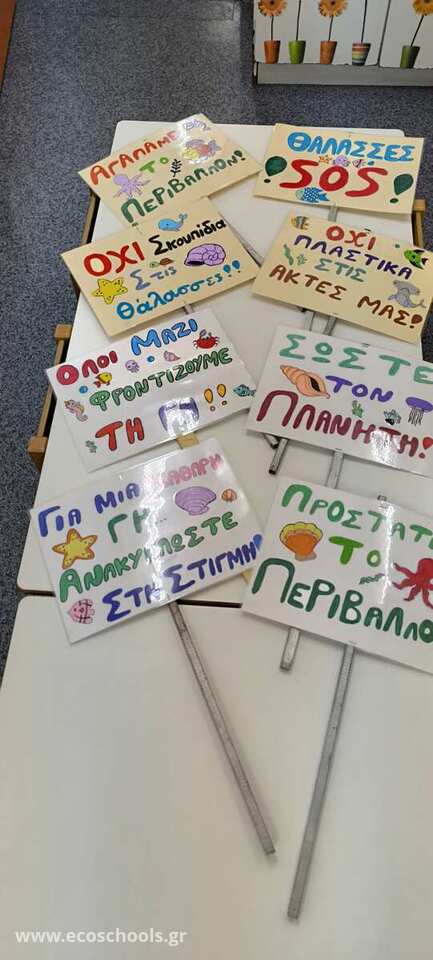 ΑΓΑΠΑΜΕ
ΤΟ
ΠΕΡΙΒΑΛΛΟΝ!
ΘΑΛΑΣΣΕΣ
SOS!
ΟΧΙ ΣΚΟΥΠΙΔΙΑ
ΣΤΙΣ
ΘΑΛΑΣΣΕΣ!!
ΟΧΙ
ΠΛΑΣΤΙΚΑ
ΣΤΙΣ
ΑΚΤΕΣ ΜΑΣ!
ΟΛΟΙ ΜΑΖΙ
ΦΡΟΝΤΙΖΟΥΜΕ
ΤΗ ΓΗ!!
ΣΩΣΤΕ
ΤΟΝ
ΠΛΑΝΗΤΗ!
ΓΙΑ ΜΙΑ ΚΑΘΑΡΗ
ΓΗ...
ΑΝΑΚΥΚΛΩΣΤΕ
ΣΤΗ ΣΤΙΓΜΗ
ΠΡΟΣΤΑΤ
ΤΟ
ΠΕΡΙΒΑΛΛΟ
www.ecoschools.gr